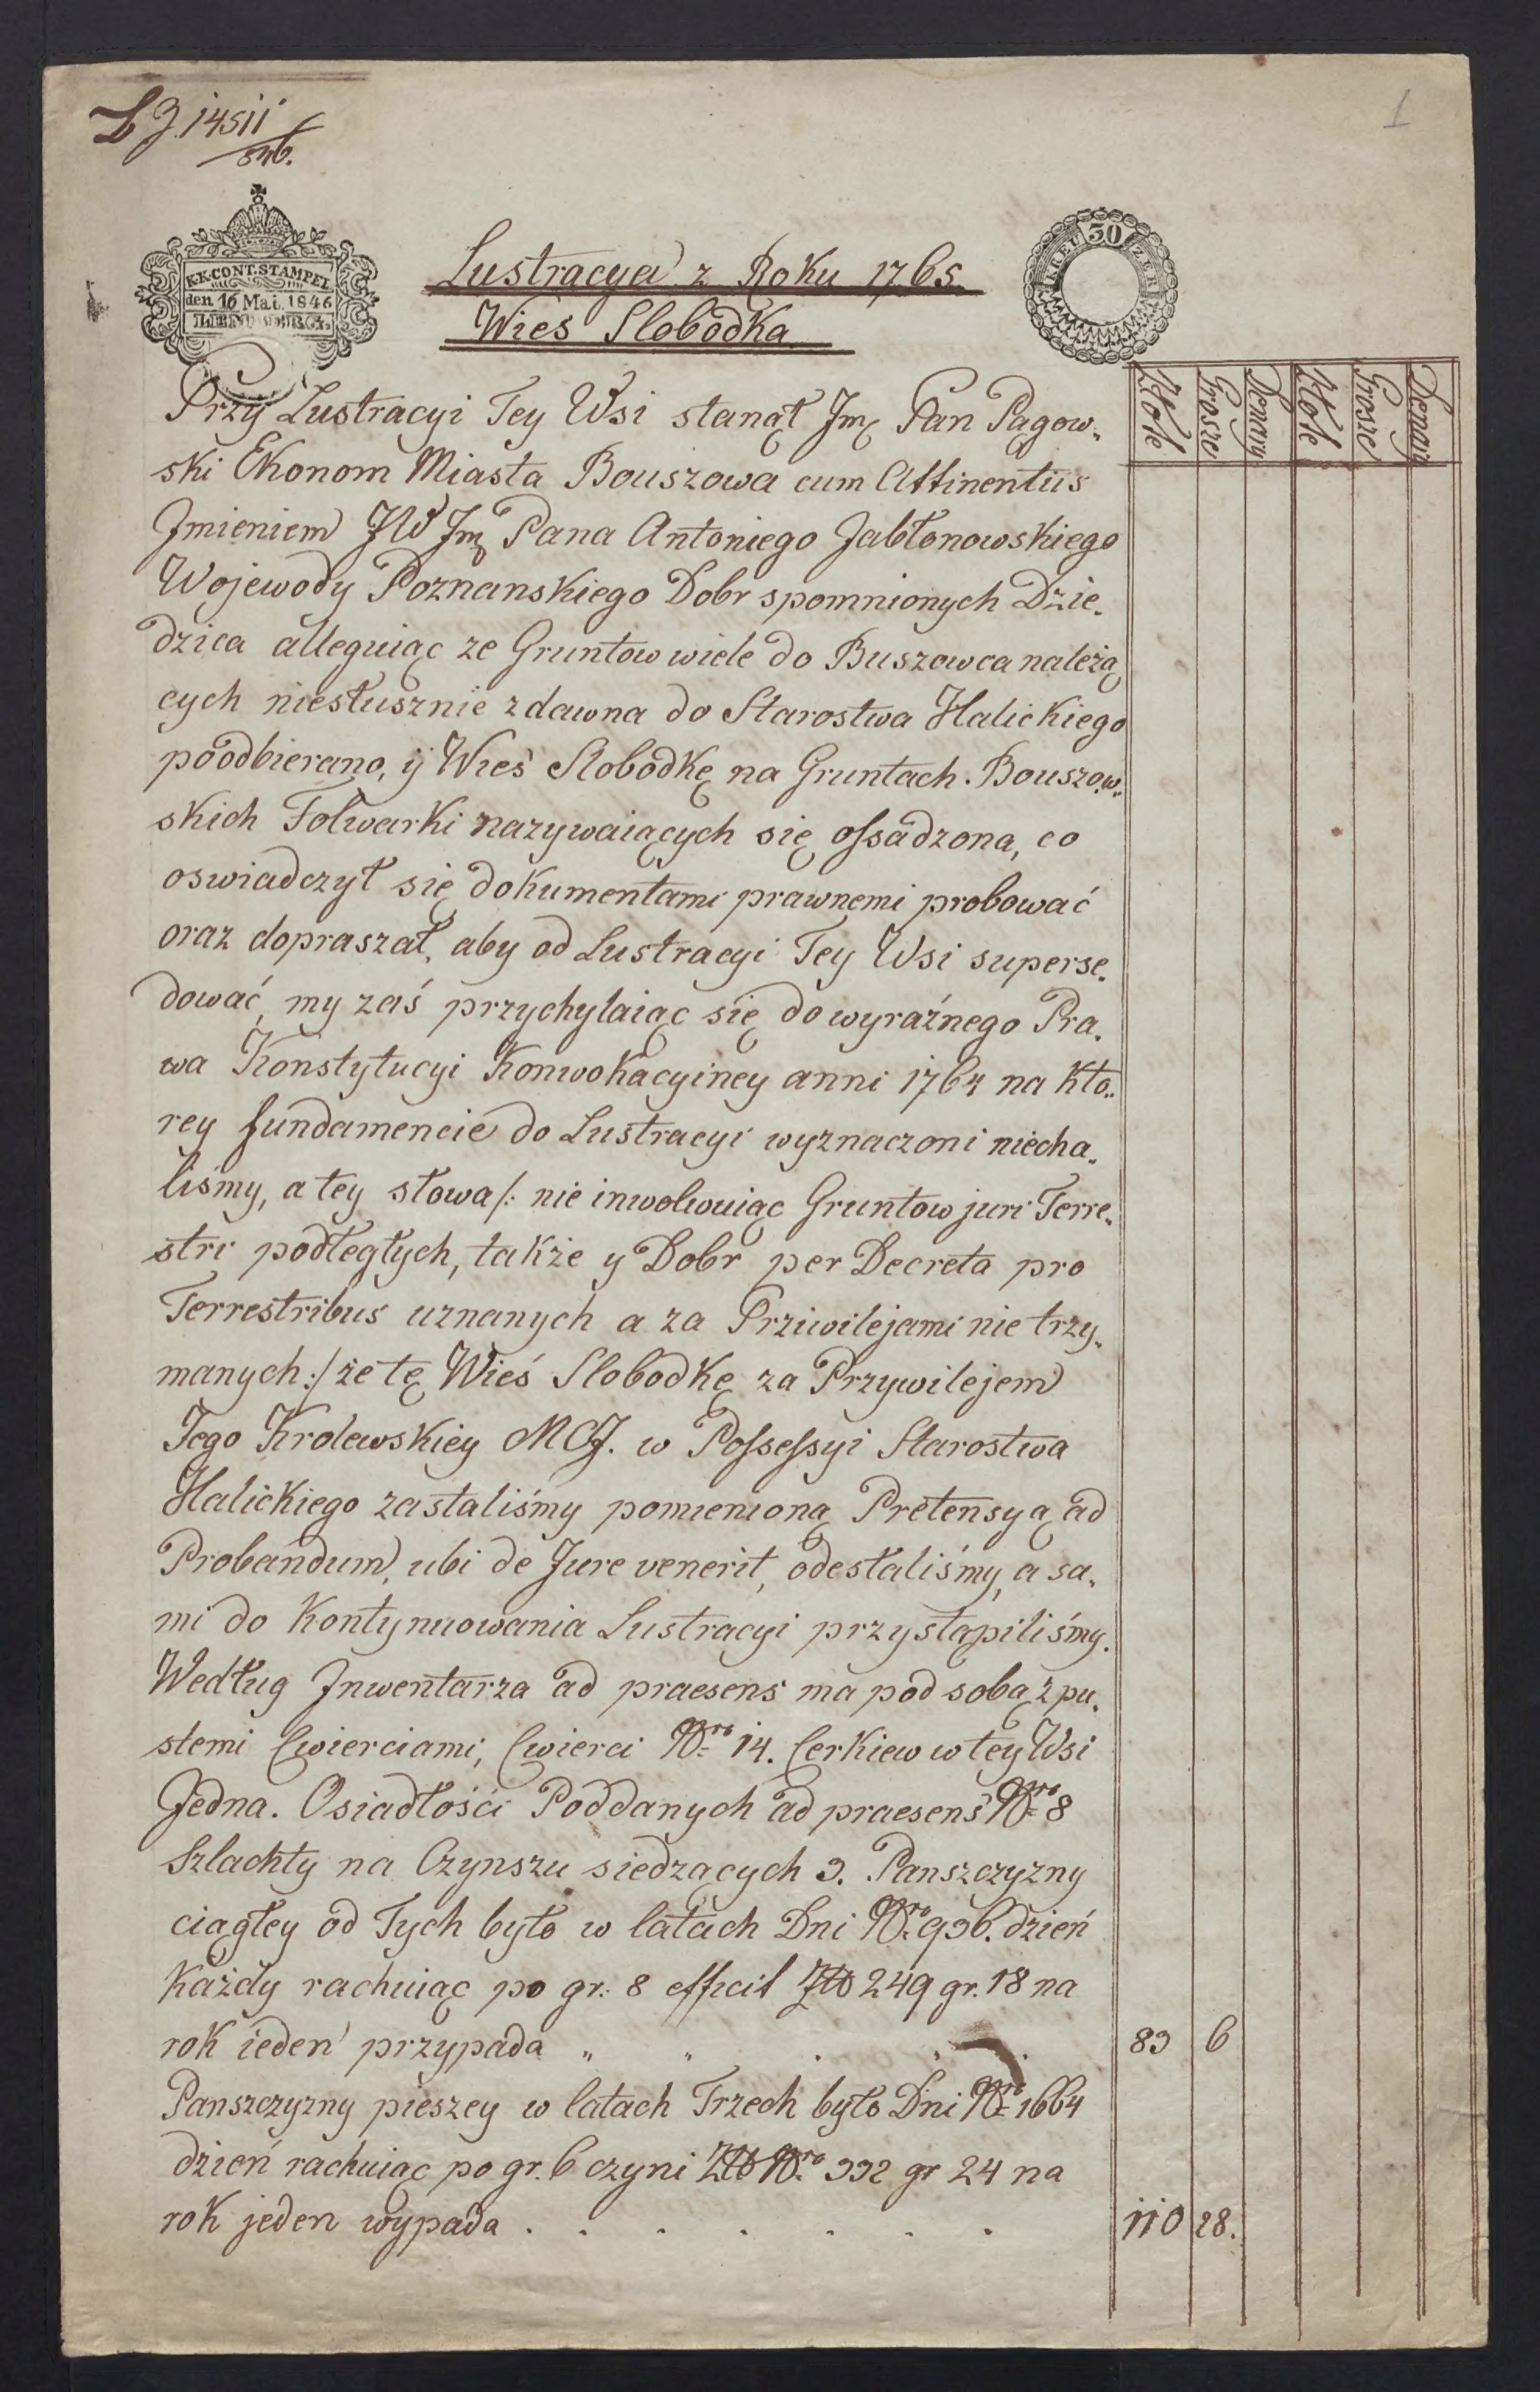 LJ. 14511
846.
1
K.K.CONT.STAMPEL
den 16 Mai. 1846
LEMBERG.
30
KREUZER
Lustracya z Roku 1765.
Wies Slobodka
Złote Grosze Denary Złote Grosze Denary
Przy Lustracyi Tey Wsi stanął Jmć Pan Pągow„
ski Ekonom Miasta Bouszowa cum Attinentiis
Jmieniem JW Jmć Pana Antoniego Jabłonowskiego
Wojewody Poznanskiego Dobr spomnionych Dzie„
dzica alleguiąc ze Gruntow wiele do Buszowca należą
cych niesłusznie zdawna do Starostwa Halickiego
poodbierano, ÿ Wieś Slobodkę na Gruntach Bouszow„
skich Folwarki nazywaiących się ossadzona, co
oswiadczył się dokumentami prawnemi probować
oraz dopraszał, aby od Lustracyi Tey Wsi superse„
dować, my zaś przychylaiąc się do wyraźnego Pra„
wa Konstytucyi Konwokacyiney anni 1764 na Kto„
rey fundamencie do Lustracyi wyznaczoni niecha„
liśmy, a tey słowa /: nie inwolwuiąc Gruntow juri Terre„
stri podległych, także y Dobr per Decreta pro
Terrestribus uznanych a za Prziwilejami nie trzy„
manych :/ że tę Wieś Slobodkę za Przywilejem
Jego Krolewskiey MCJ. w Possessyi Starostwa
Halickiego zastaliśmy pomienioną Pretensyą ad
Probandum, ubi de Jure venerit, odesłaliśmy, a sa„
mi do Kontynuowania Lustracyi przystąpiliśmy.
Według Jnwentarza ad praesens ma pod sobą z pu„
stemi Cwierciami, Cwierci Nro 14. Cerkiew w tey Wsi
Jedna. Osiadłości Poddanych ad praesens Nro 8
Szlachty na Czynszu siedzących 3. Panszczyzny
ciągłey od Tych było w latach Dni Nro 936. dzień
Każdy rachuiąc po gr: 8 efficit Złt 249 gr. 18 na
rok ieden przypada „ „ . „ . 83 6
Panszczyzny pieszey w latach Trzech było Dni Nro 1664
dzień rachuiąc po gr. 6 czyni Złt Nro 332 gr 24 na
rok jeden wypada . . . . . . . 110 28.